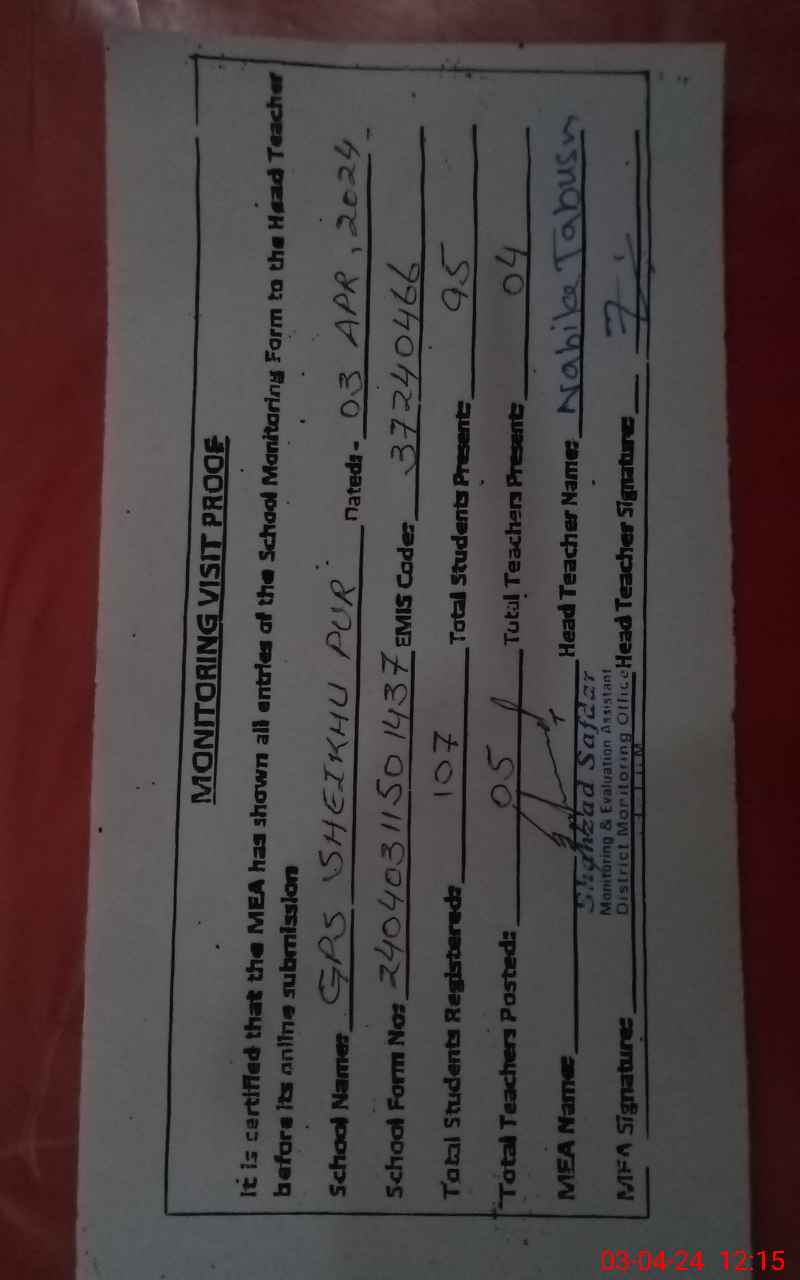 MONITORING VISIT PROOF
It is certified that the MEA has shown all entries of the School Monitoring Form to the Head Teacher
before its online submission
School Name: GPS SHEIKHU PUR Dated:- 03 APR, 2024
School Form No: 2404031150 1437 EMIS Code: 37240466
Total Students Registered: 107 Total Students Present: 95
Total Teachers Posted: 05 Total Teachers Present: 04
MEA Name: Head Teacher Name: Nabila Tabusm
Shahzad Safdar
Monitoring & Evaluation Assistant
District Monitoring Office
MEA Signature: Head Teacher Signature:
03-04-24 12:15